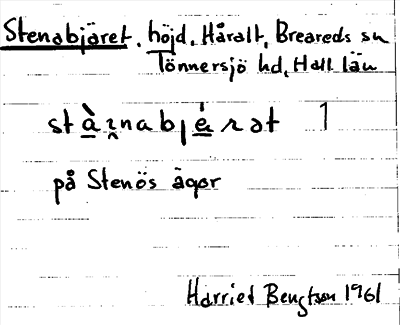 Stenabjäret, höjd, Håralt, Breareds sn
Tönnersjö hd, Hall län
stà̱i̯nabjé̱rət 1
på Stenös ägor
Harriet Bengtson 1961